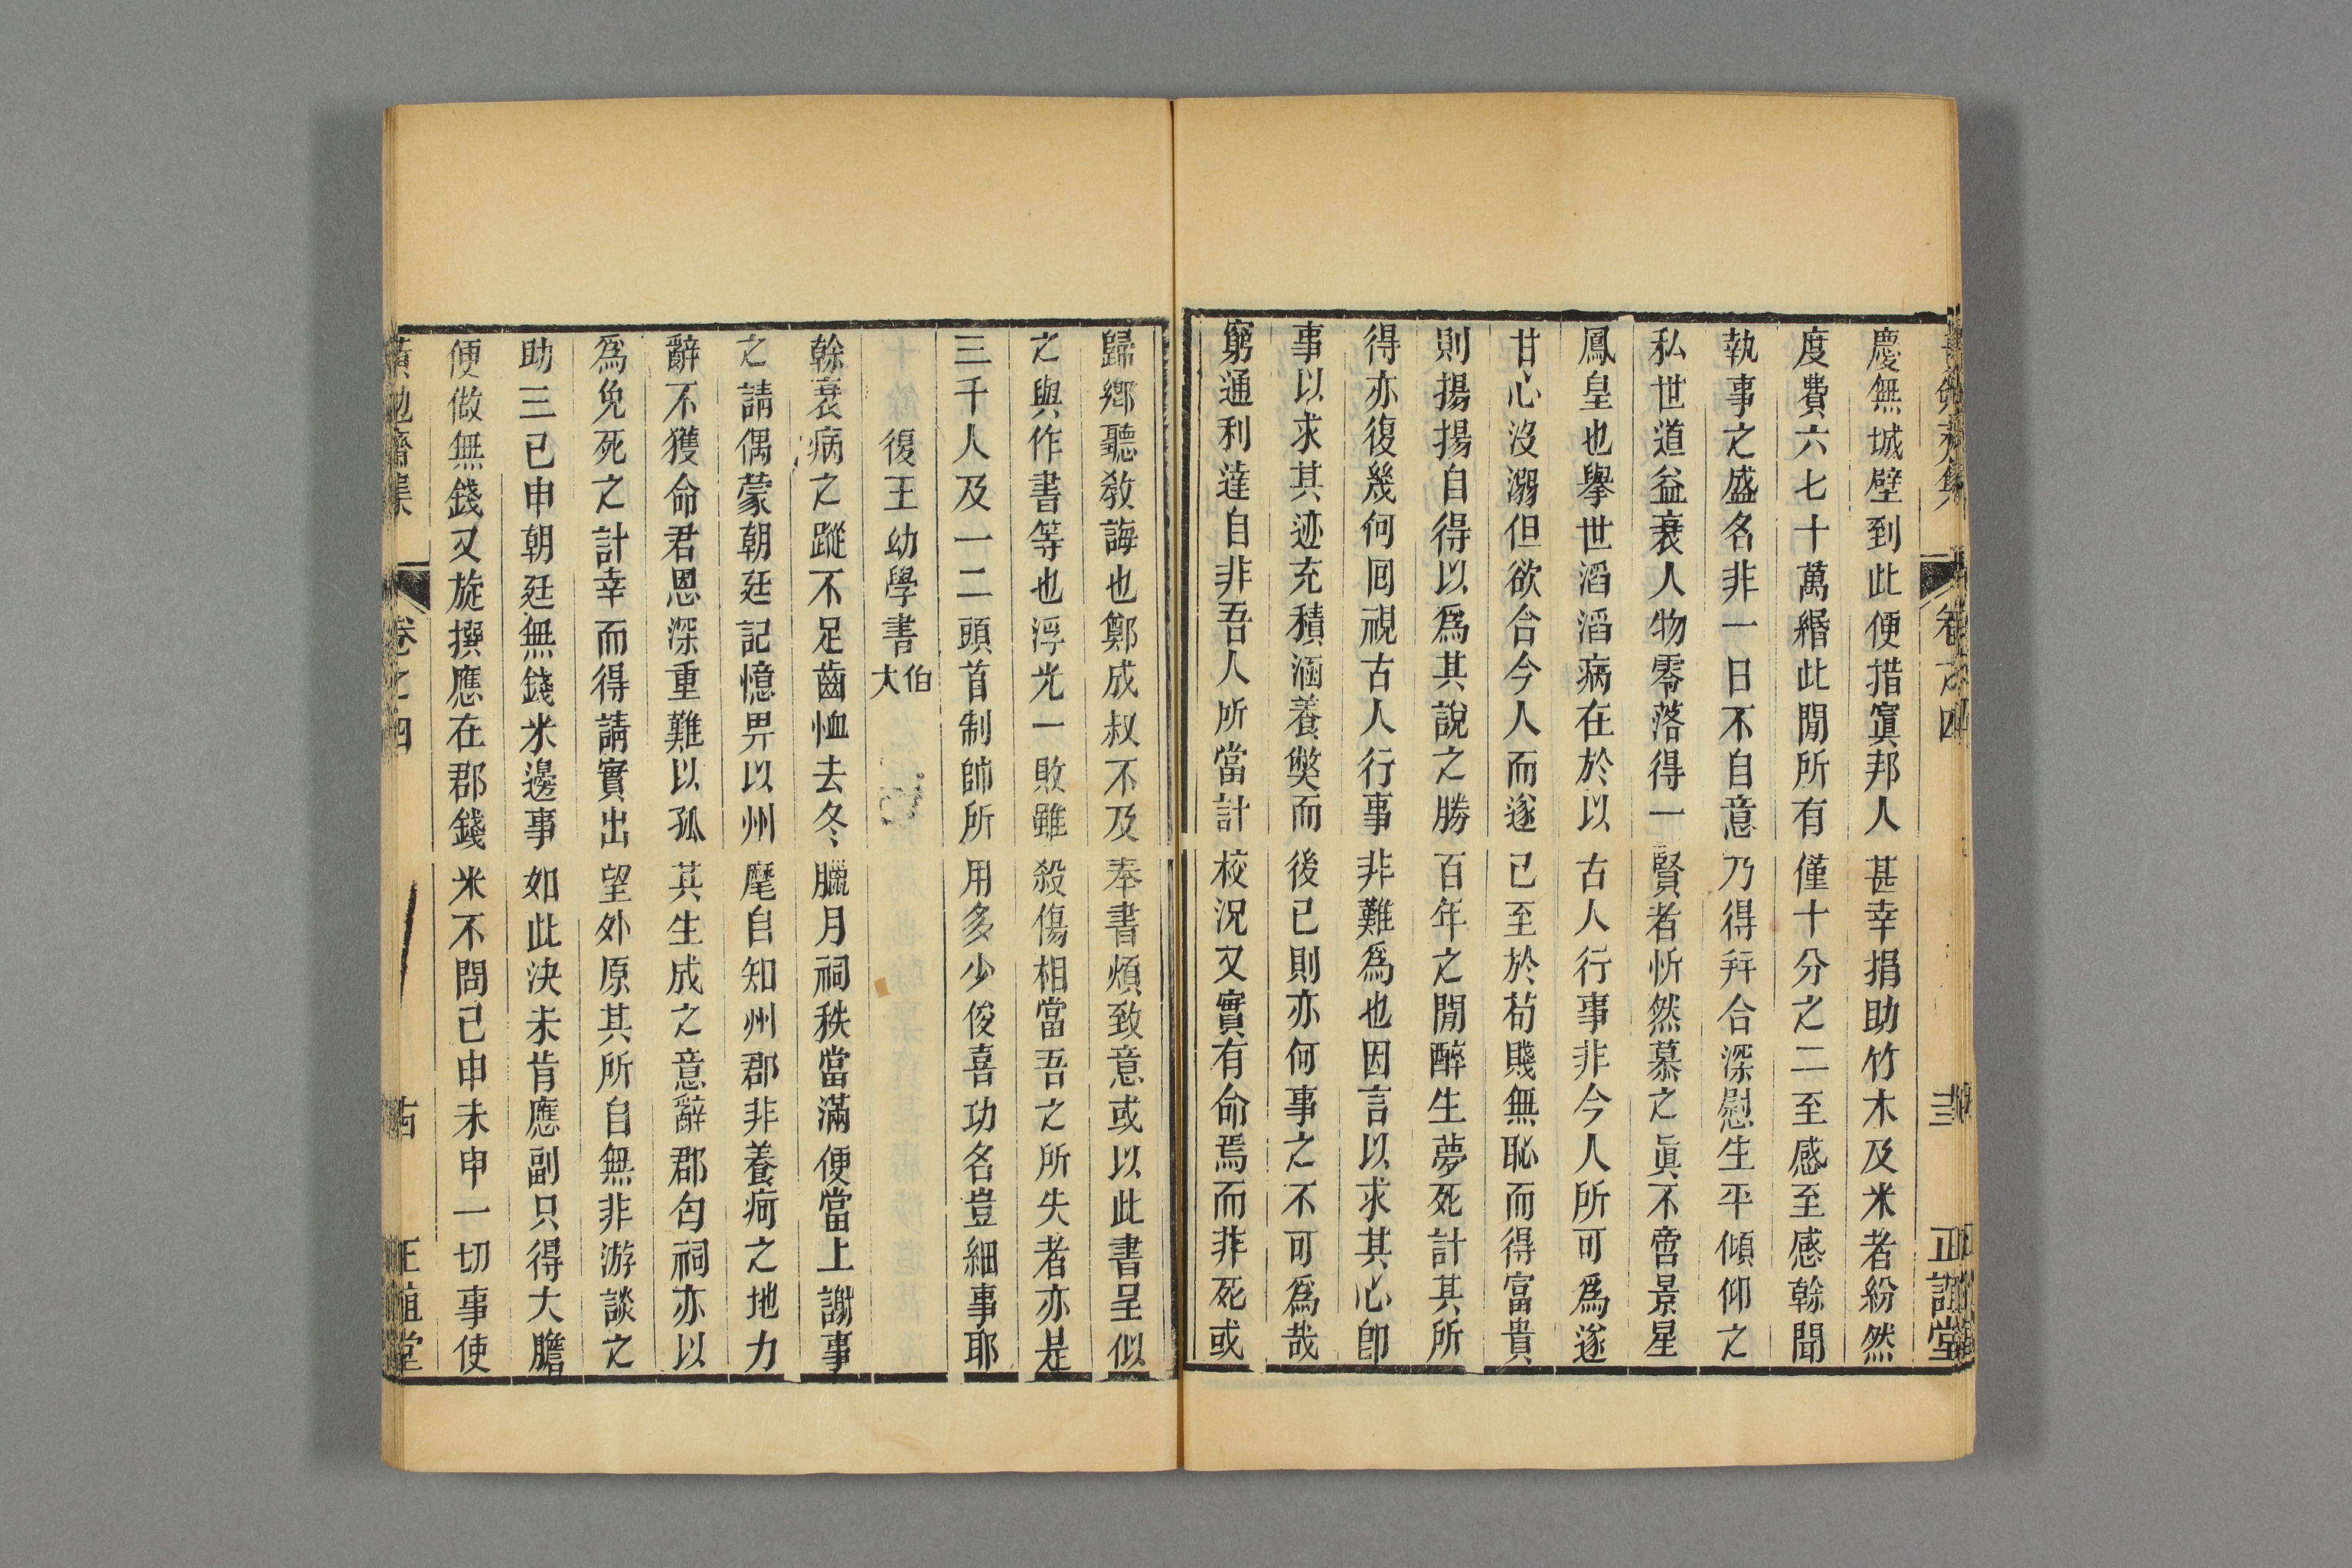 慶無城壁到此便措寘邦人甚幸捐助竹木及米者紛然
度費六七十萬緡此閒所有僅十分之二至感至感榦聞
執事之盛名非一日不自意乃得拜合深慰生平傾仰之
私世道益衰人物零落得一賢者忻然慕之眞不啻景星
鳳皇也舉世滔滔病在於以古人行事非今人所可爲遂
甘心沒溺但欲合今人而遂已至於苟賤無恥而得富貴
則揚揚自得以爲其說之勝百年之閒醉生夢死計其所
得亦復幾何囘視古人行事非難爲也因言以求其心卽
事以求其迹充積涵養斃而後已則亦何事之不可爲哉
窮通利達自非吾人所當計校况又實有命焉而非死或
歸鄉聽敎誨也鄭成叔不及奉書煩致意或以此書呈似
之與作書等也浮光一敗雖殺傷相當吾之所失者亦是
三千人及一二頭首制帥所用多少俊喜功名豈細事耶
復王幼學書伯大
榦衰病之蹤不足齒恤去冬臘月祠秩當滿便當上謝事
之請偶蒙朝廷記憶畀以州麾自知州郡非養疴之地力
辭不獲命君恩深重難以孤其生成之意辭郡匄祠亦以
爲免死之計幸而得請實出望外原其所自無非游談之
助三已申朝廷無錢米邊事如此決未肯應副只得大膽
便做無錢又旋撰應在郡錢米不問已申未申一切事使
黃勉齋集 卷之四 正誼堂